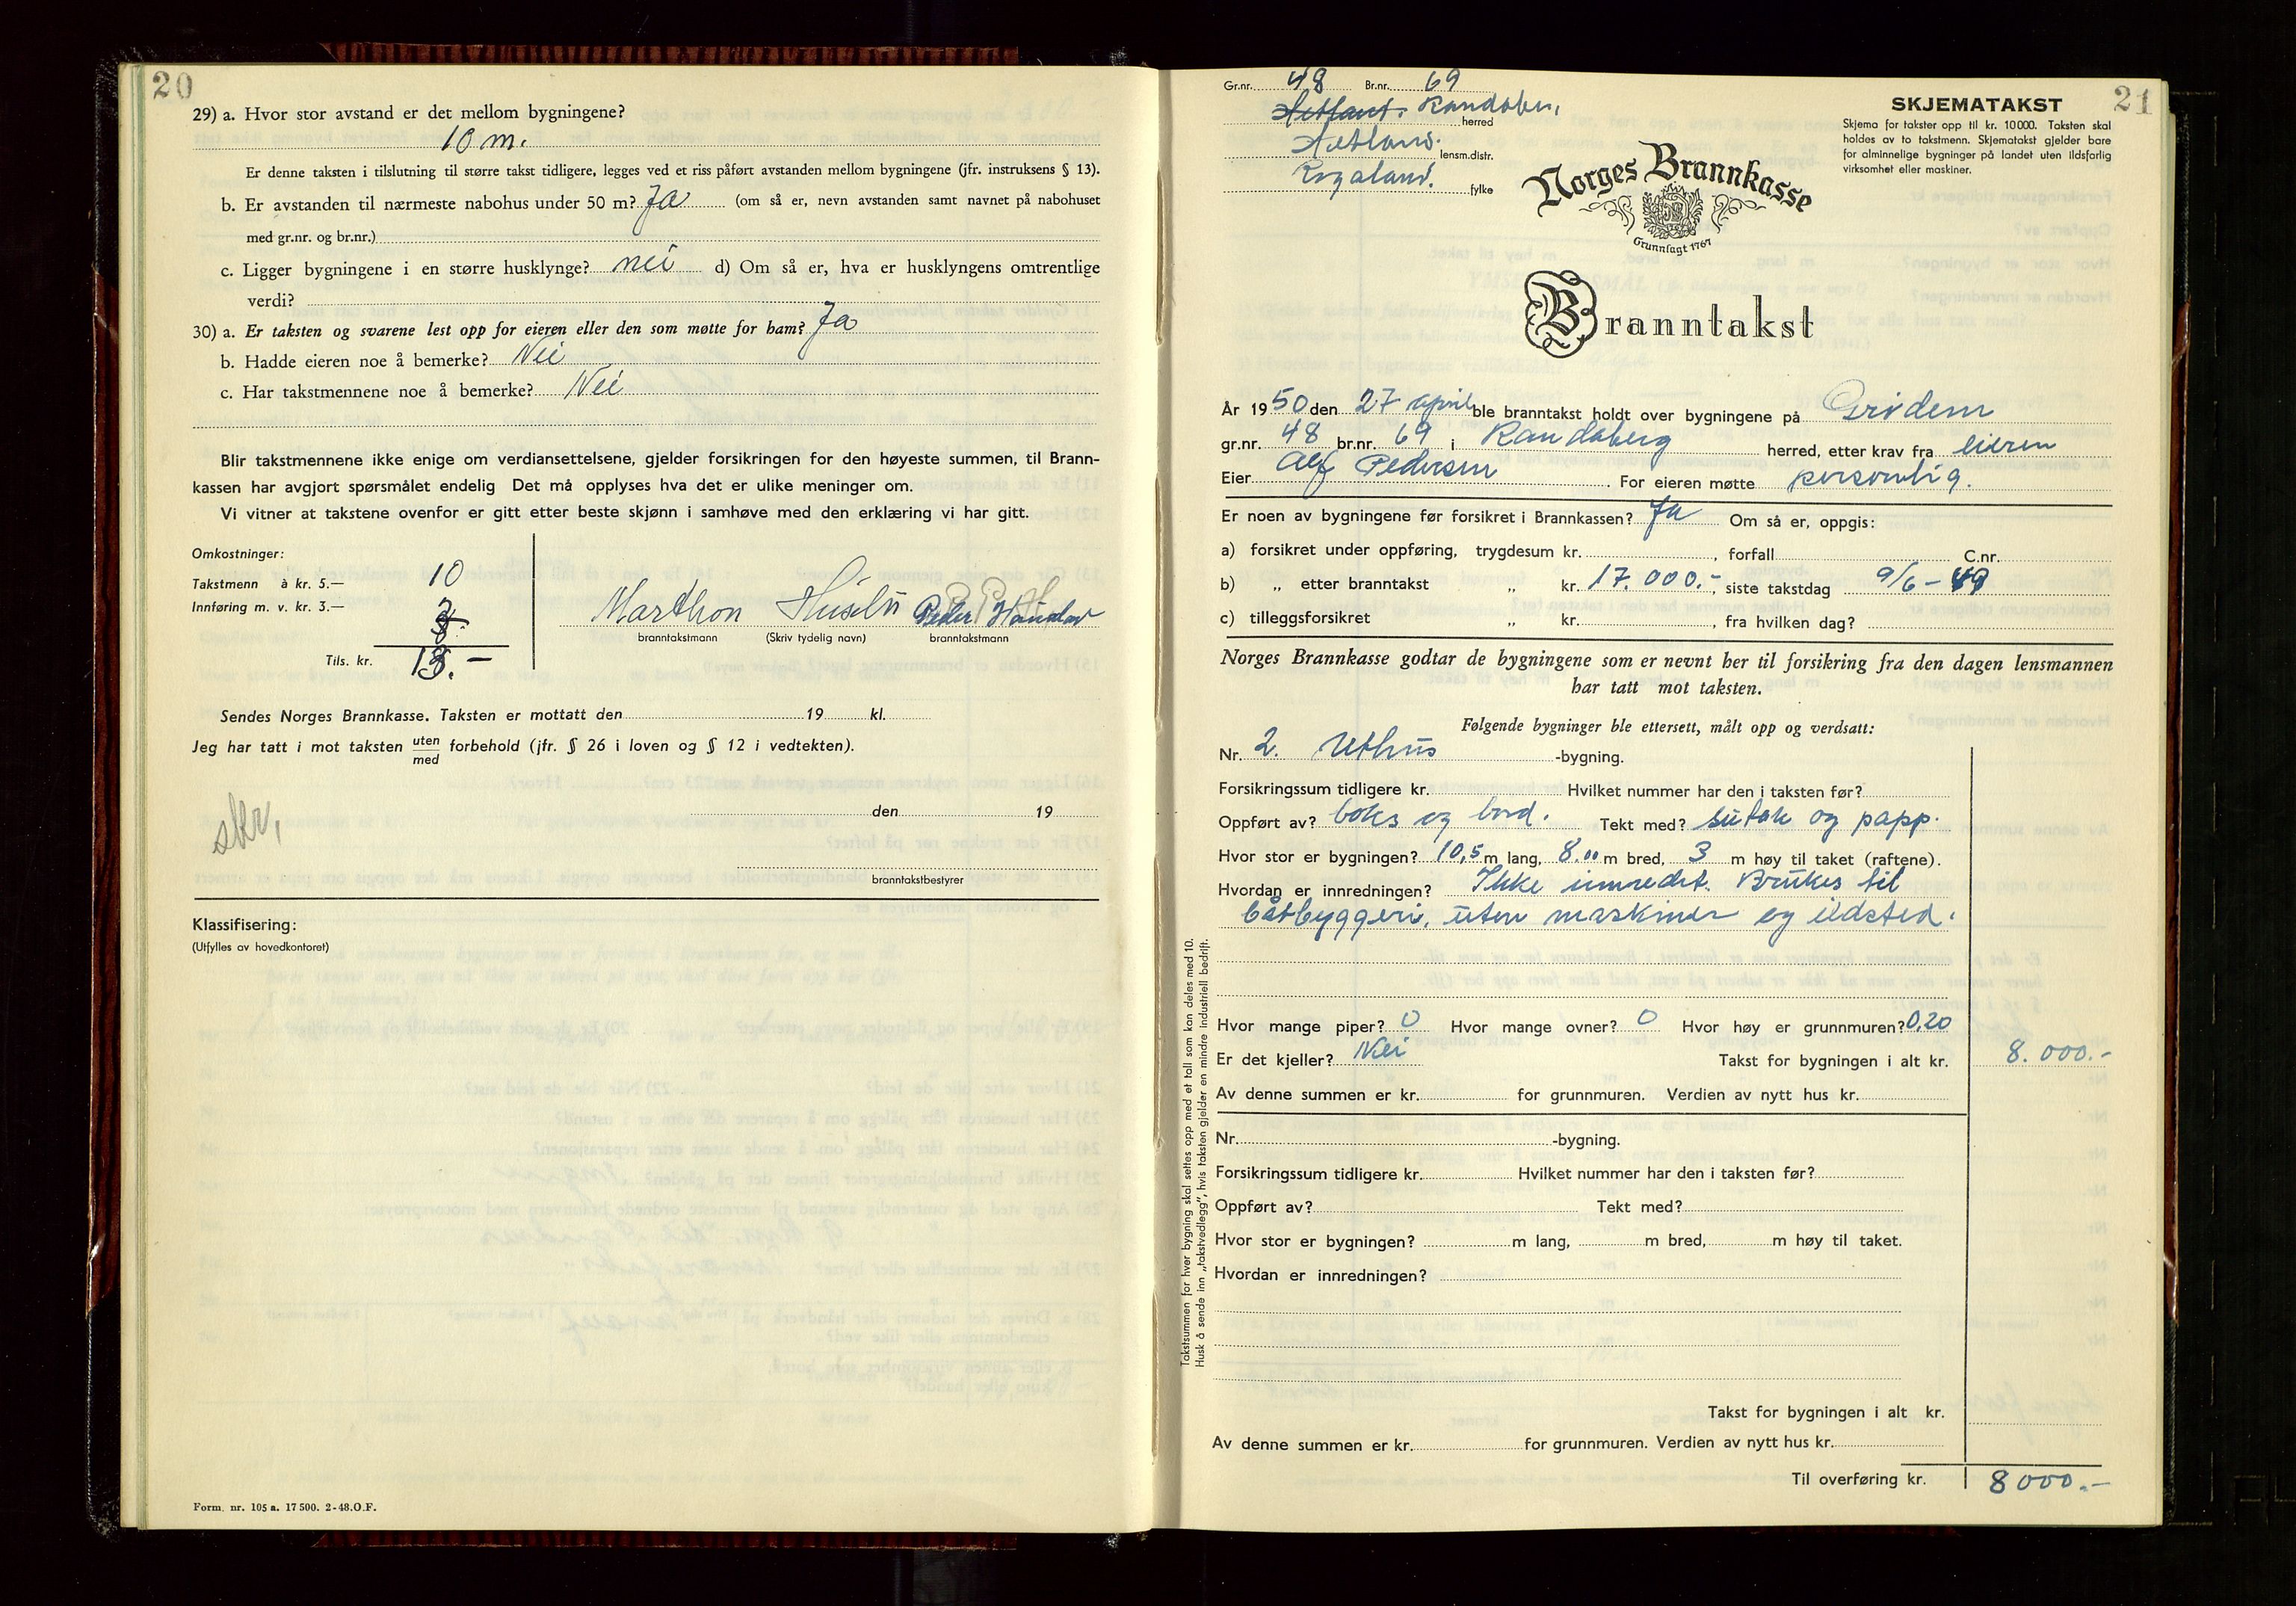 20
29) a. Hvor stor avstand er det mellom bygningene?
10 m.
Er denne taksten i tilslutning til større takst tidligere, legges ved et riss påført avstanden mellom bygningene (jfr. instruksens § 13).
b. Er avstanden til nærmeste nabohus under 50 m? Ja (om så er, nevn avstanden samt navnet på nabohuset
med gr.nr. og br.nr.)
c. Ligger bygningene i en større husklynge? nei d) Om så er, hva er husklyngens omtrentlige
verdi?
30) a. Er taksten og svarene lest opp for eieren eller den som møtte for ham? Ja
b. Hadde eieren noe å bemerke? Nei
c. Har takstmennene noe å bemerke? Nei
Blir takstmennene ikke enige om verdiansettelsene, gjelder forsikringen for den høyeste summen, til Brann-
kassen har avgjort spørsmålet endelig Det må opplyses hva det er ulike meninger om.
Vi vitner at takstene ovenfor er gitt etter beste skjønn i samhøve med den erklæring vi har gitt.
Omkostninger:
Takstmenn à kr. 5.— 10
Innføring m. v. kr. 3.— 3
Tils. kr. 13.—
Marthon Husebø Peder
branntakstmann (Skriv tydelig navn) branntakstmann
Sendes Norges Brannkasse. Taksten er mottatt den 19 kl.
Jeg har tatt i mot taksten uten forbehold (jfr. § 26 i loven og § 12 i vedtekten).
med
skr,
den 19
branntakstbestyrer
Klassifisering:
(Utfylles av hovedkontoret)
Form. nr. 105 a. 17 500. 2-48.O.F.
21
Gr.nr. 48 Br.nr. 69
Hetland. Randaber,
herred
Hetland.
lensm.distr.
Rogaland.
fylke
SKJEMATAKST
Skjema for takster opp til kr. 10000. Taksten skal
holdes av to takstmenn. Skjematakst gjelder bare
for alminnelige bygninger på landet uten ildsfarlig
virksomhet eller maskiner.
Norges Brannkasse
Grunnlagt 1767
Branntakst
År 1950 den 27 april ble branntakst holdt over bygningene på Grødem
gr.nr. 48 br.nr. 69 i Randaberg herred, etter krav fra eieren
Eier Alf Pedersen. For eieren møtte personlig.
Er noen av bygningene før forsikret i Brannkassen? Ja Om så er, oppgis:
a) forsikret under oppføring, trygdesum kr. , forfall C.nr.
b) „ etter branntakst „ kr. 17.000.-, siste takstdag 9/6-49
c) tilleggsforsikret „ kr. , fra hvilken dag?
Norges Brannkasse godtar de bygningene som er nevnt her til forsikring fra den dagen lensmannen
har tatt mot taksten.
Følgende bygninger ble ettersett, målt opp og verdsatt:
Nr. 2. Uthus -bygning.
Forsikringssum tidligere kr. Hvilket nummer har den i taksten før?
Oppført av? boks og bord. Tekt med? sutak og papp.
Hvor stor er bygningen? 10,5 m lang, 8.00 m bred, 3 m høy til taket (raftene).
Hvordan er innredningen? Ikke innredet. Brukes til
båtbyggeri, uten maskiner og ildsted.
Hvor mange piper? 0 Hvor mange ovner? 0 Hvor høy er grunnmuren? 0,20
Er det kjeller? Nei Takst for bygningen i alt kr. 8.000.-
Av denne summen er kr. for grunnmuren. Verdien av nytt hus kr.
Nr. -bygning.
Forsikringssum tidligere kr. Hvilket nummer har den i taksten før?
Oppført av? Tekt med?
Hvor stor er bygningen? m lang, m bred, m høy til taket.
Hvordan er innredningen?
Takst for bygningen i alt kr.
Av denne summen er kr. for grunnmuren. Verdien av nytt hus kr.
Til overføring kr. 8000.-
Takstsummen for hver bygning skal settes opp med et tall som kan deles med 10.
Husk å sende inn „takstvedlegg", hvis taksten gjelder en mindre industriell bedrift.